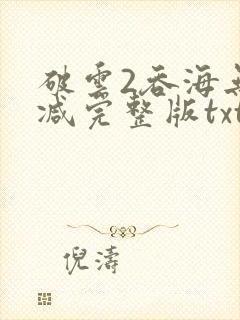 破雲2吞海無
减完整版txt
倪濤